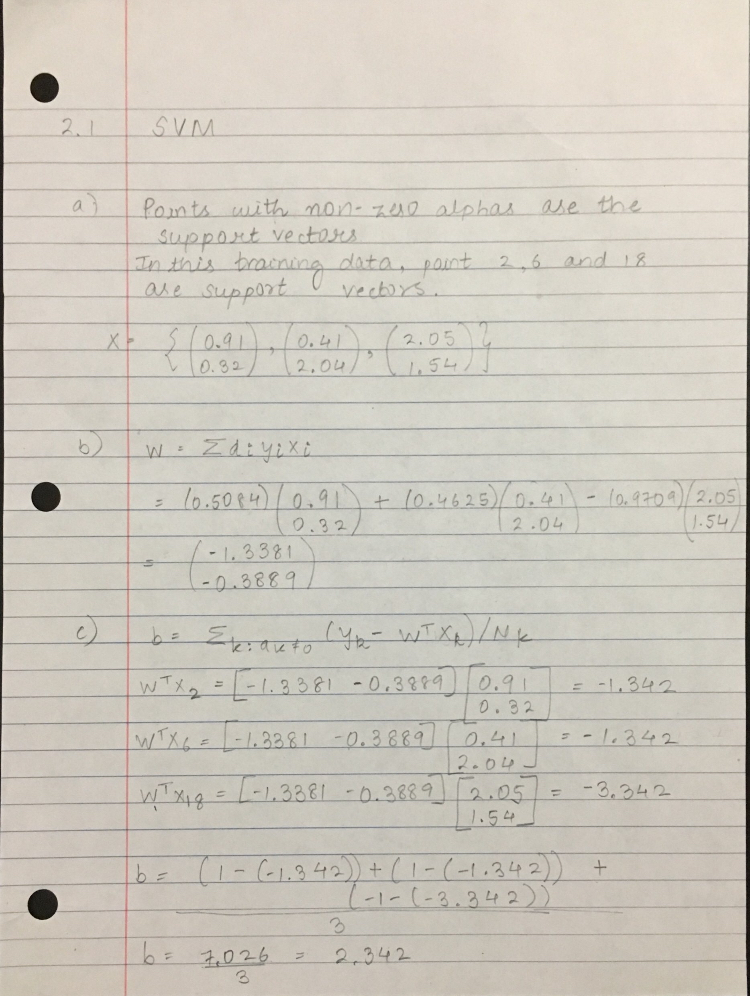 2.1 SVM
a) Points with non-zero alphas are the
support vectors
In this training data, point 2, 6 and 18
are support vectors.
X = { (0.91 0.32), (0.41 2.04), (2.05 1.54) }
b) W = Σαiyixi
= (0.5084)(0.91 0.32) + (0.4625)(0.41 2.04) - (0.9709)(2.05 1.54)
= (-1.3381 -0.3889)
c) b = Σk:αk≠0 (yk - WTXk)/Nk
WTX2 = [-1.3381 -0.3889] [0.91 0.32] = -1.342
WTX6 = [-1.3381 -0.3889] [0.41 2.04] = -1.342
WTX18 = [-1.3381 -0.3889] [2.05 1.54] = -3.342
b = (1-(-1.342)) + (1-(-1.342)) +
(-1-(-3.342))
3
b = 7.026/3 = 2.342